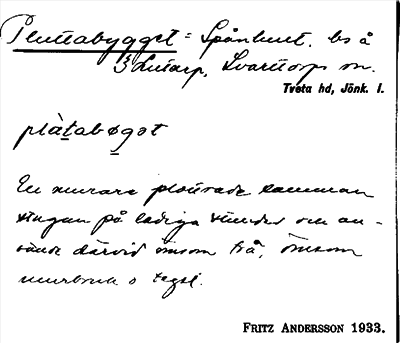 Pluttabygget = Spånhult, bs å
S Lutarp, Svarttorps sn.
Tveta hd, Jönk. l.
plàtabøgət
En murare plottrade samman
stugan på lediga stunder och an-
vände därvid ömsom trä, ömsom
murbruk o tegel.
FRITZ ANDERSSON 1933.